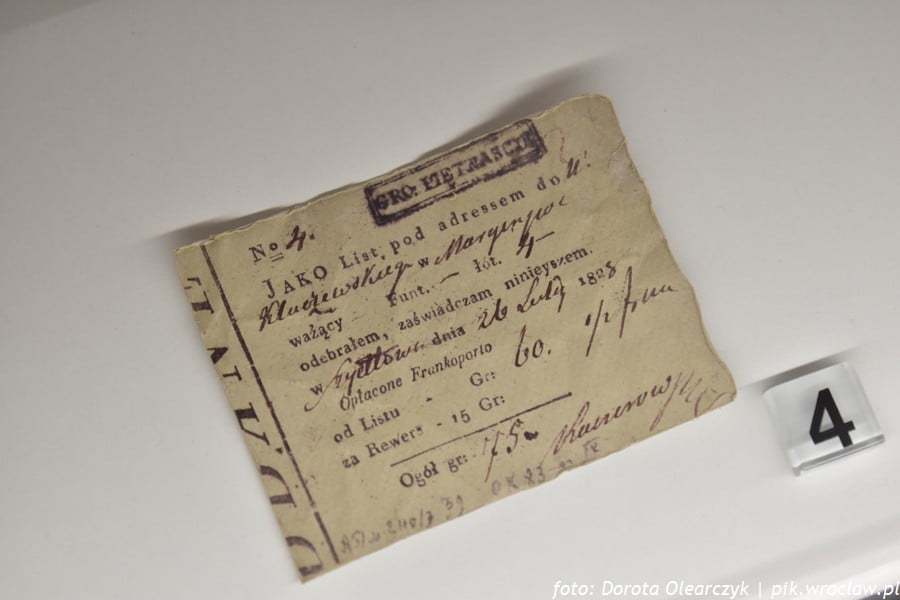 GRO: PIETRASCYK
No 4.
JAKO List, pod adressem do W!
Kluczewskiego w Maryenpol
ważący - Funt. - łót. 4 -
odebrałem, zaświadczam ninieyszem.
w dnia 26 Luty 1828
Opłacone Frankoporto
od Listu - Gr: 60.
za Rewers - 15 Gr:
Ogół gr: 75
4
foto: Dorota Olearczyk | pik.wroclaw.pl